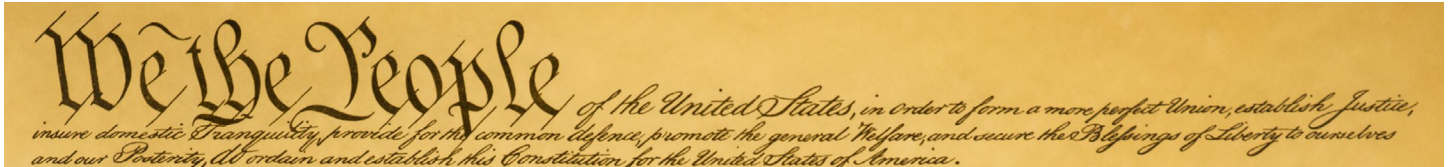 We the People of the United States, in order to form a more perfect Union, establish Justice,
insure domestic Tranquility, provide for the common defence, promote the general Welfare, and secure the Blessings of Liberty to ourselves
and our Posterity, do ordain and establish this Constitution for the United States of America.